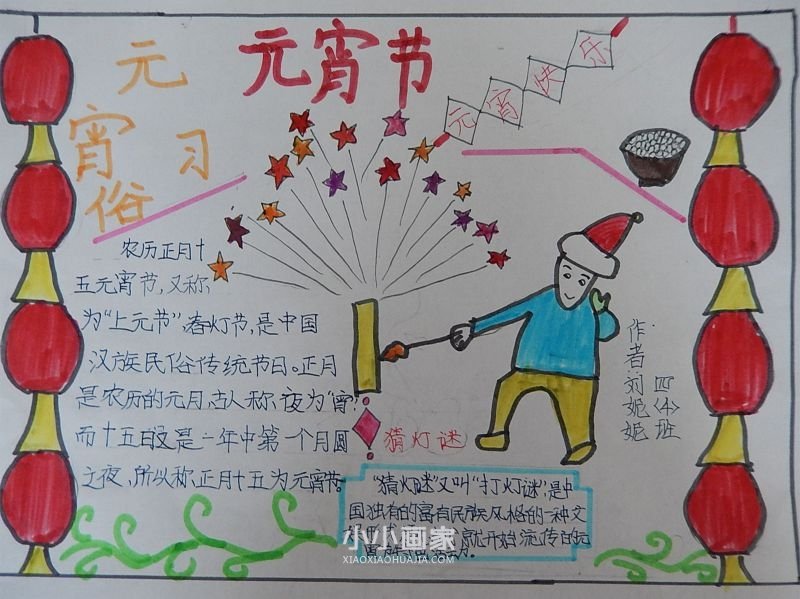 元宵节
元
宵 习
俗
元宵快乐
农历正月十
五元宵节,又称
为“上元节”,春灯节,是中国
汉族民俗传统节日。正月
是农历的元月,古人称,夜为“宵”,
而十五日又是一年中第一个月圆
之夜,所以称正月十五为元宵节。
作者:刘妮妮
四〈4〉班
猜灯谜
“猜灯谜”又叫“打灯谜”,是中
国独有的富有民族风格的一种文
就开始流传的元
小小画家
XIAOXIAOHUAJIA.COM